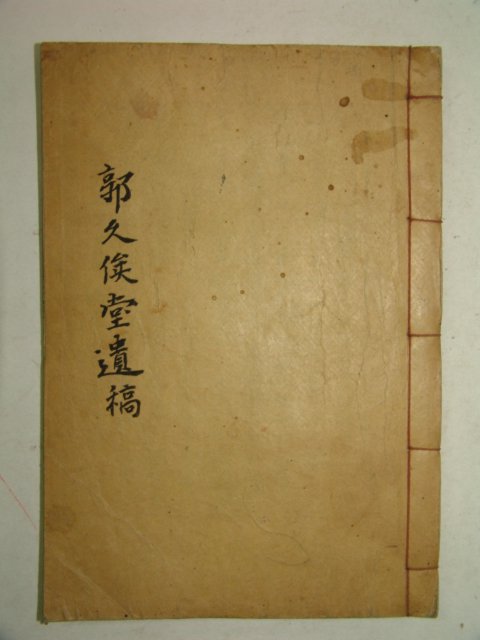 郭久俟堂遺稿